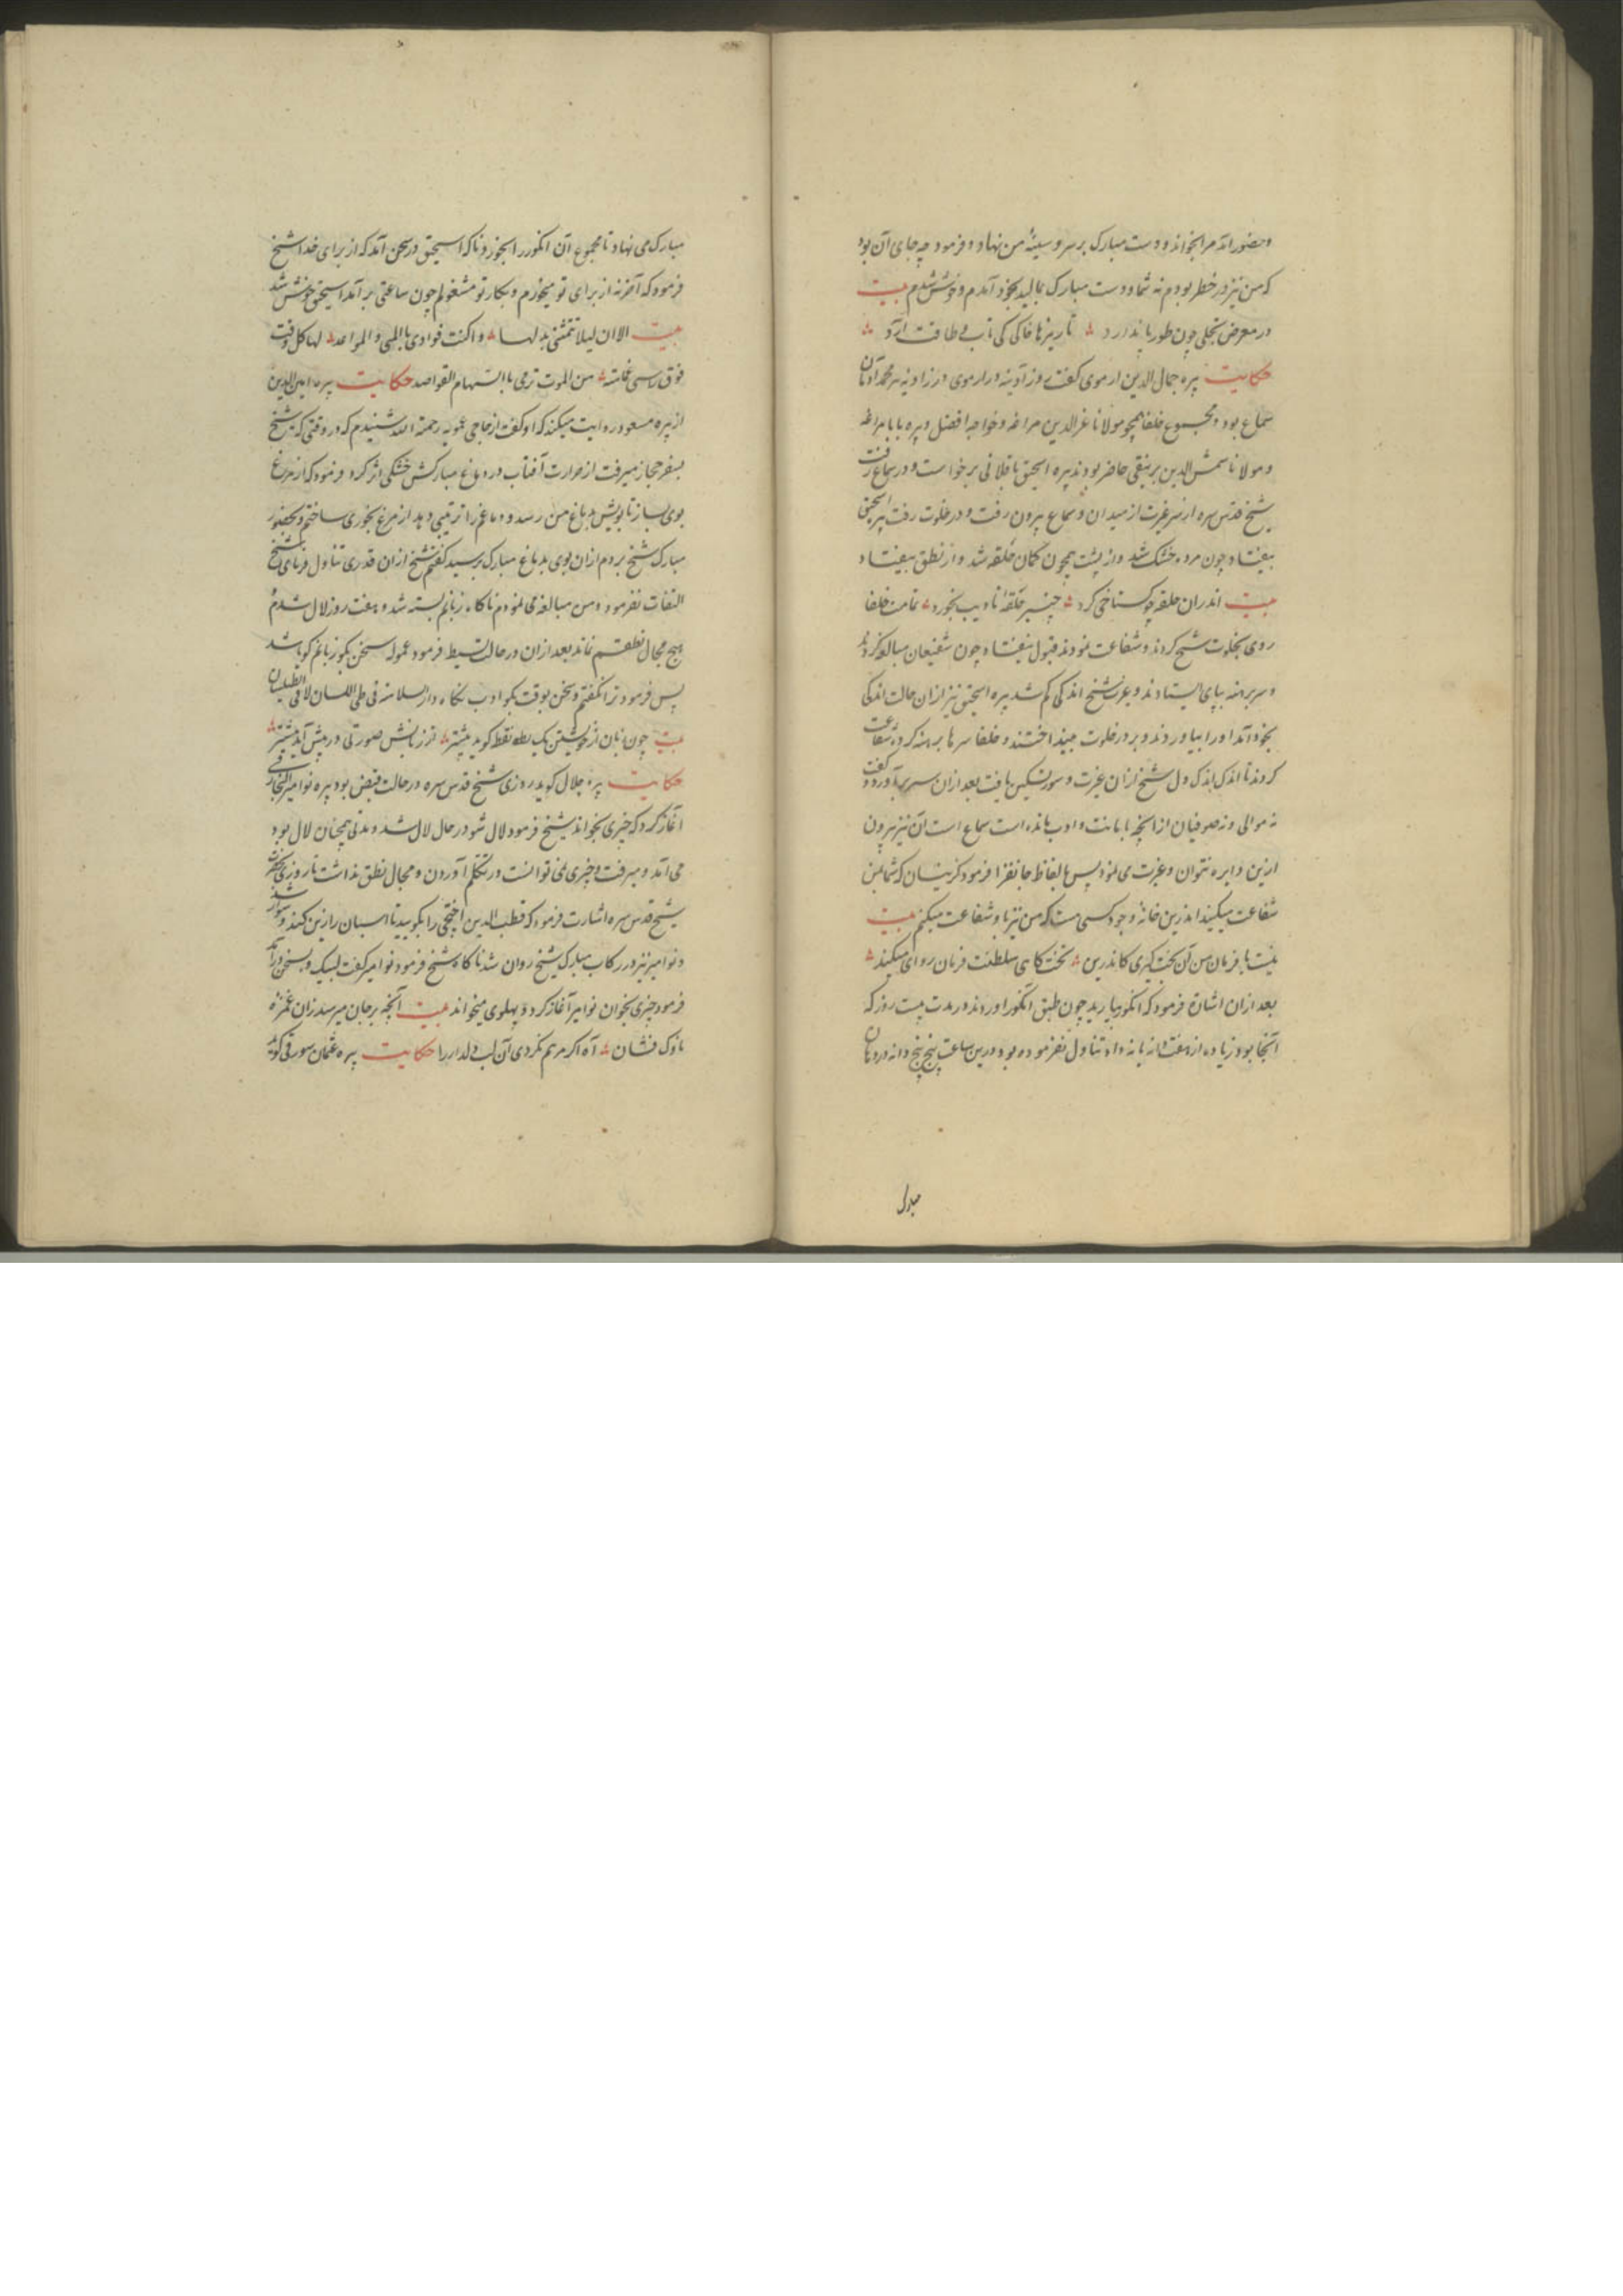 وحضور اند مرا بخواند و دست مبارک بر سر و سینهٔ من نهاد و فرمود چه جای آن بود
که من نیز در خطر بودم نه شما و دست مبارک بمالید بخود آمدم و خوش شدم بیت
در معرض تجلی چون طور پا ندارد تا ریزها خاکی کی تاب طاقت آرد
حکایت پیره جمال الدین ارموی گفت روز آدینه در ارموی در زاویه پیر محمد
سماع بود و مجموع خلفا همچو مولانا عز الدین مراغه و خواجه افضل و پیره بابا مراغه
و مولانا شمس الدین برنیقی حاضر بودند پیره اسحق باقلانی برخواست و در سماع رفت
شیخ قدس سره از سر غیرت از میدان سماع بیرون رفت و در خلوت رفت پیره اسحق
بیفتاد چون مرده خشک شد و از پشت همچون کمان حلقه شد و از نطق بیفتاد
بیت اندران حلقه چو گستاخی کرد چنبر حلقهٔ تادیب بخورد تمامت خلفا
روی بخلوت شیخ کردند و شفاعت نمودند قبول نیفتاد چون شفیعان مبالغه کردند
و سر برهنه بپای ایستادند و غیرت شیخ اندکی کم شد پیره اسحق نیز از ان حالت اندکی
بخود آمد او را بیاوردند و بر در خلوت بینداختند و خلفا سرها برهنه کرده شفاعت
کردند تا اندک اندک دل شیخ از ان غیرت و سورت تسکین یافت بعد از ان سر برآورد و گفت
نه موالی و نه صوفیان از آنچه با بابت و ادب مانده است سماع است آن نیز بیرون
ازین دایره نتوان و غیرت می نمود پس بالفاظ جانفزا فرمود کز نیسان که شما بمن
شفاعت میکنید اندرین خانهٔ وجود کسی هست که من نیز باو شفاعت میکنم بیت
نیست با فرمان من آن تخت گیری کاندرین تختگاه سلطنت فرمان روای میکند
بعد از ان اشارة فرمود که انگور بیارید چون طبق انگور اوردند و در مدت بیست روز که
آنجا بود زیاده از هفت دانه یا نه دانه تناول نفرموده بود و درین ساعت پنج پنج دانه در دهان
مبارک
مبارک می نهاد تا مجموع آن انگور را بخورد ناگاه اسحق در سخن آمد که از برای خدا شیخ
فرمود که آخر نه از برای تو میخورم و بکار تو مشغولم چون ساعتی بر آمد اسحق خوش شد
بیت الا ان لیلا تمنی بدلها و اکنت فوادی بالمنی و المواعد لها کل وقت
فوق راسی غمامة من الموت ترمی بالسهام القواصد حکایت پیره امین الدین
از پیره مسعود روایت میکند که او گفت از حاجی عمویه رحمة الله شنیدم که در وقتی که شیخ
بسفر حجاز میرفت از حرارت آفتاب در دماغ مبارکش خشکی اثر کرد و فرمود که از مرغ
بوی بساز تا بویش بدماغ من رسد و دماغم را ترتیبی دهد از مرغ بخوری ساختم و بحضور
مبارک شیخ بردم از ان بوی بدماغ مبارک برسید گفتم شیخ از ان قدری تناول فرمای شیخ
التفات نفرمود و من مبالغه می نمودم ناگاه زبانم بسته شد و هفت روز لال شدم
هیچ مجال نطقم نماند بعد از ان در حالت بسیط فرمود عمویه سخن بگو زبانم گویا شد
پس فرمود ترا نگفتم و سخن بوقت بگو ادب نگاه دار السلامة فی طی اللسان لا فی الطیلسان
بیت چون زبان از خویشتن یک نقطه گوید بیشتر از زبانش صورتی در پیش آید بیشتر
حکایت پیره جلال گوید روزی شیخ قدس سره در حالت قبض بود پیره نوامیر
آغاز کرد که چیزی بخواند شیخ فرمود لال شو در حال لال شد و مدتی همچنان لال بود
می آمد و میرفت و چیزی نمی توانست در تکلم آوردن و مجال نطق نداشت تا روزی حضرت
شیخ قدس سره اشارت فرمود که قطب الدین اختجی را بگویید تا اسبان را زین کند و سوار شد
و نوامیر نیز در رکاب مبارک شیخ روان شد ناگاه شیخ فرمود نوامیر گفت لبیک و بسخن درآمد
فرمود چیزی بخوان نوامیر آغاز کرد و پهلوی میخواند بیت آنچه بر جان میرسد زان غمزهٔ
ناوک فشان آه اگر مرهم نکردی آن لب دلدار را حکایت پیره عثمان سورقی گوید